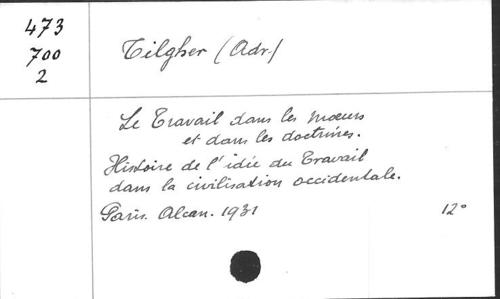 473
700
2
Tilgher (Adr.)
Le Travail dans les mœurs
et dans les doctrines.
Histoire de l'idée du Travail
dans la civilisation occidentale.
Paris. Alcan. 1931 12°